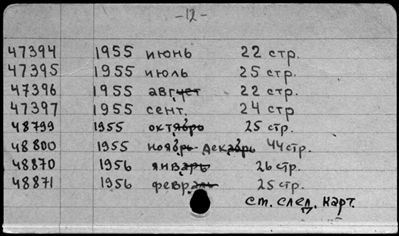 -12-
47394 1955 июнь 22 стр.
47395 1955 июль 25 стр.
47396 1955 август 22 стр.
47397 1955 сент. 24 стр
48799 1955 октябрь 25 стр.
48800 1955 ноябрь-декабрь 44 стр.
48870 1956 январь 26 стр.
48871 1956 февраль 25 стр.
см. след. карт.